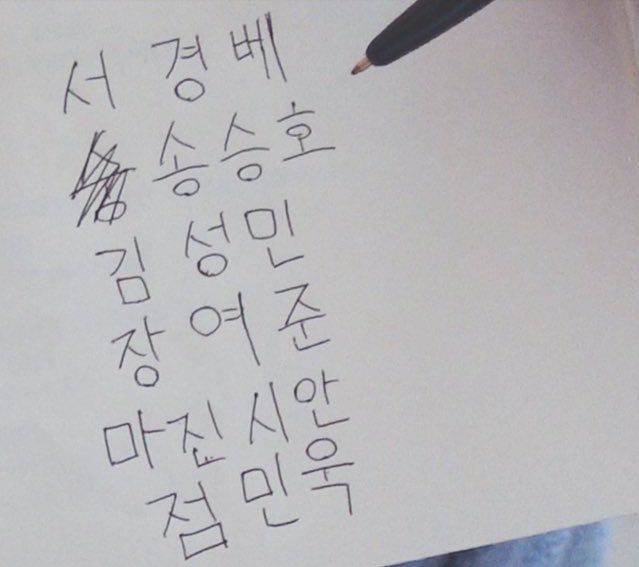 서 경 베
송승호
김 성민
장 여 준
마진 시안
점 민욱